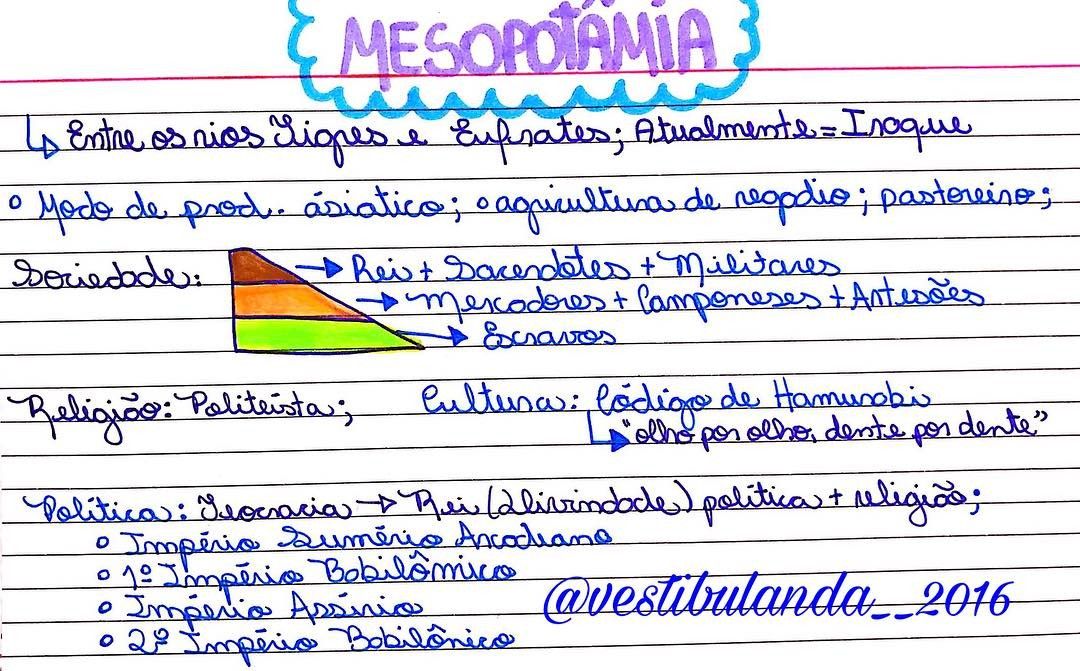 MESOPOTÂMIA
↳ Entre os rios Tigres e Eufrates; Atualmente = Iraque
° Modo de prod. ásiatico; ° agricultura de regadio; pastoreiro;
Sociedade:
→ Reis + Sacerdotes + Militares
→ Mercadores + Camponeses + Artesões
→ Escravos
Religião: Politeísta; Cultura: Código de Hamurabi
↳ "olho por olho, dente por dente"
Política: Teocracia → Rei (Divindade) política + religião;
° Império Sumério Arcadiano
° 1º Império Babilômico
° Império Assírio
° 2º Império Babilônico
@vestibulanda__2016